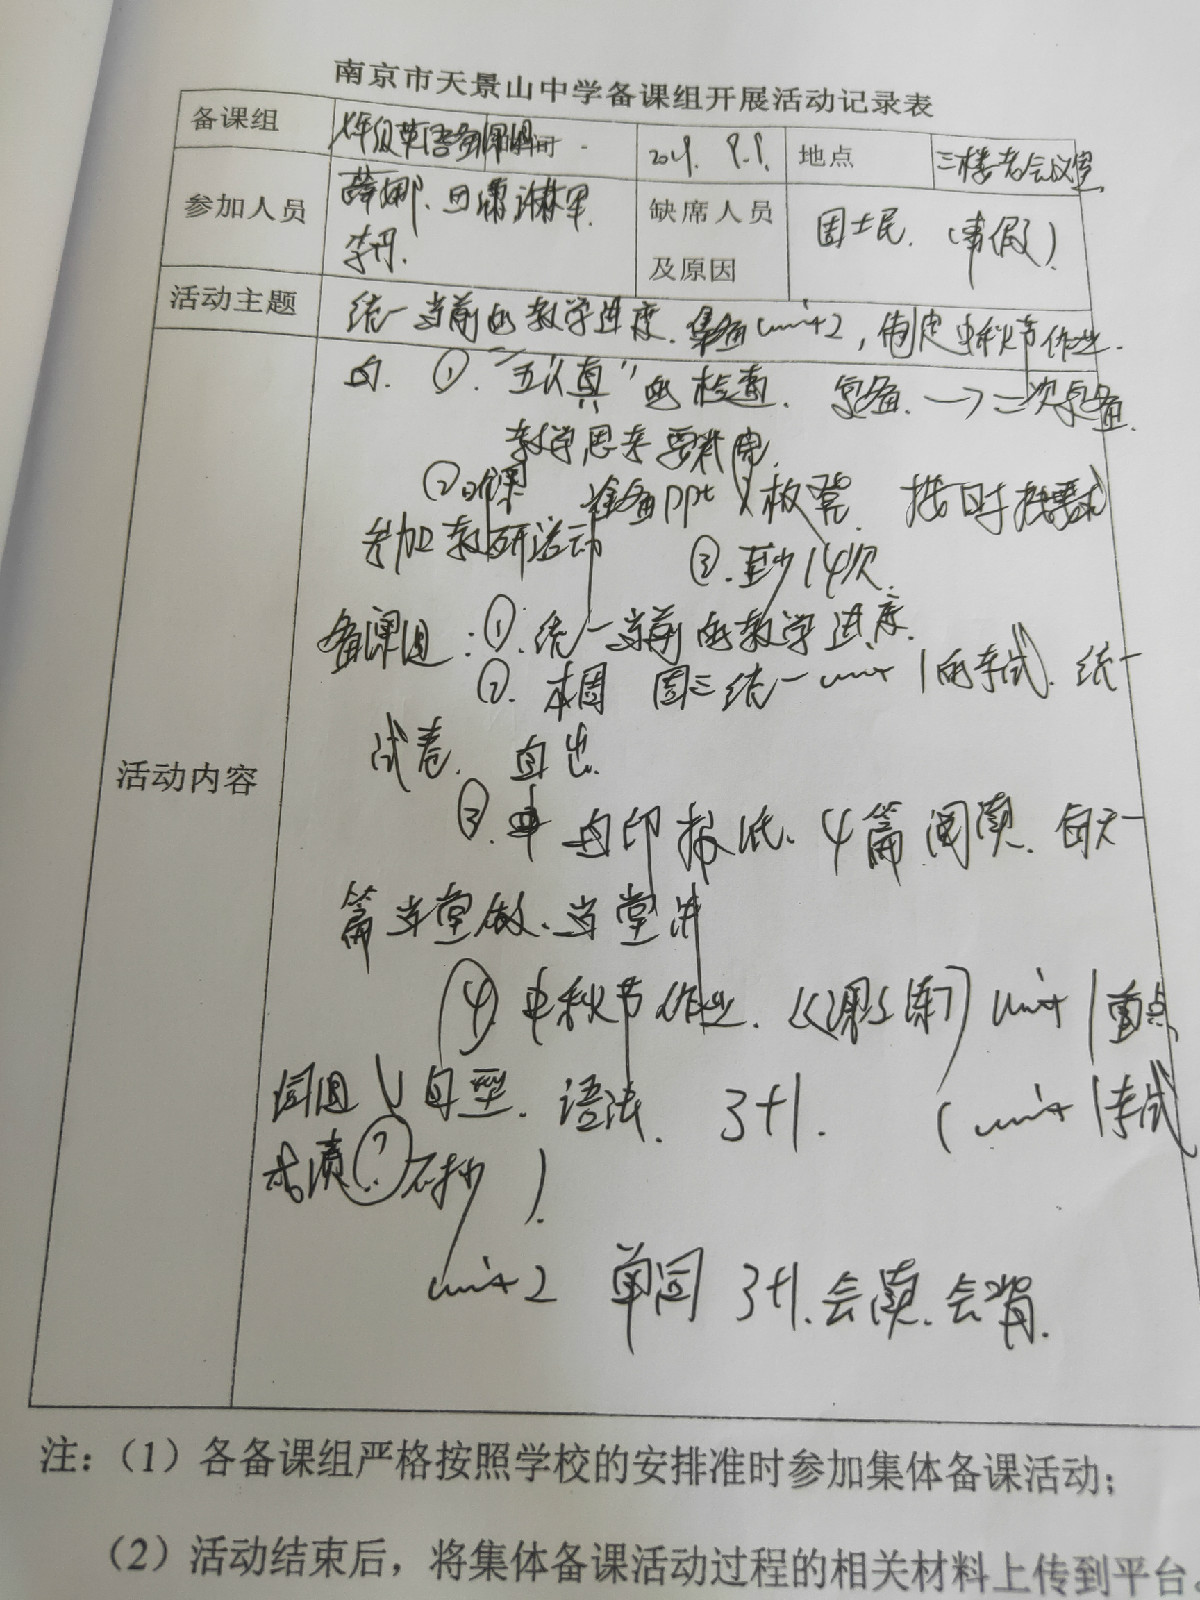 南京市天景山中学备课组开展活动记录表
备课组 年级英语备课组 时间 2019. 9.9. 地点 三楼会议室
参加人员 薛娜. 田 李丹. 缺席人员及原因 周士民. (事假)
活动主题 统一当前的教学进度. 集备unit 2, 制定中秋节作业.
活动内容
①. "五认真"的检查. 复备. → 二次复备.
教学思考要
②课 准备ppt 板凳. 按时按要求
参加教研活动 ③. 至少14次.
备课组: ①. 统一当前的教学进度.
②. 本周 周三统一unit 1的考试. 统一
试卷. 自出.
③. 自印报纸. 4篇阅读. 每天一
篇当堂做. 当堂讲
④ 中秋节作业. 《课课练》 unit 1重点
词组 句型. 语法. 3+1. (unit 1考试
成绩 不抄).
unit 2 单词 3+1. 会读. 会背.
注:(1)各备课组严格按照学校的安排准时参加集体备课活动;
(2)活动结束后,将集体备课活动过程的相关材料上传到平台。